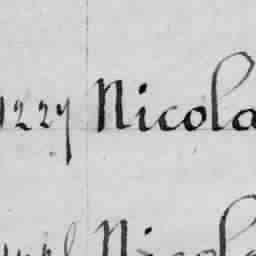 1227 Nicola
Nicola